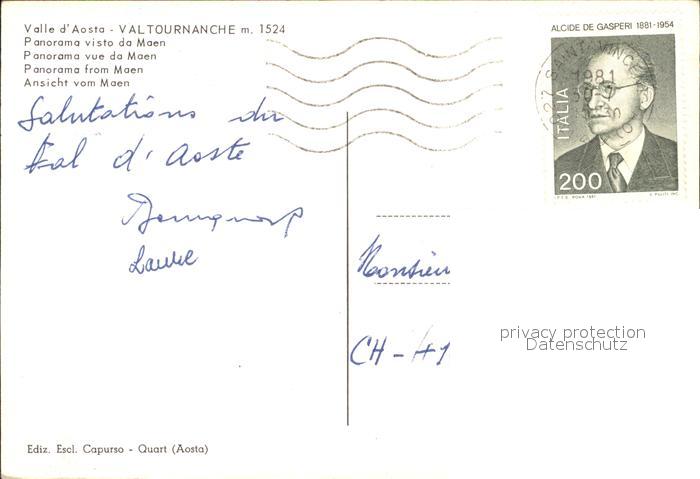 Valle d'Aosta - VALTOURNANCHE m. 1524
Panorama visto da Maen
Panorama vue da Maen
Panorama from Maen
Ansicht vom Maen
Salutations du
Val d'Aoste
Laure
Ediz. Escl. Capurso - Quart (Aosta)
ALCIDE DE GASPERI 1881-1954
ITALIA
200
I.P.Z.S. ROMA 1981
SAINT VINCENT
1981
Monsieu
CH-
privacy protection
Datenschutz